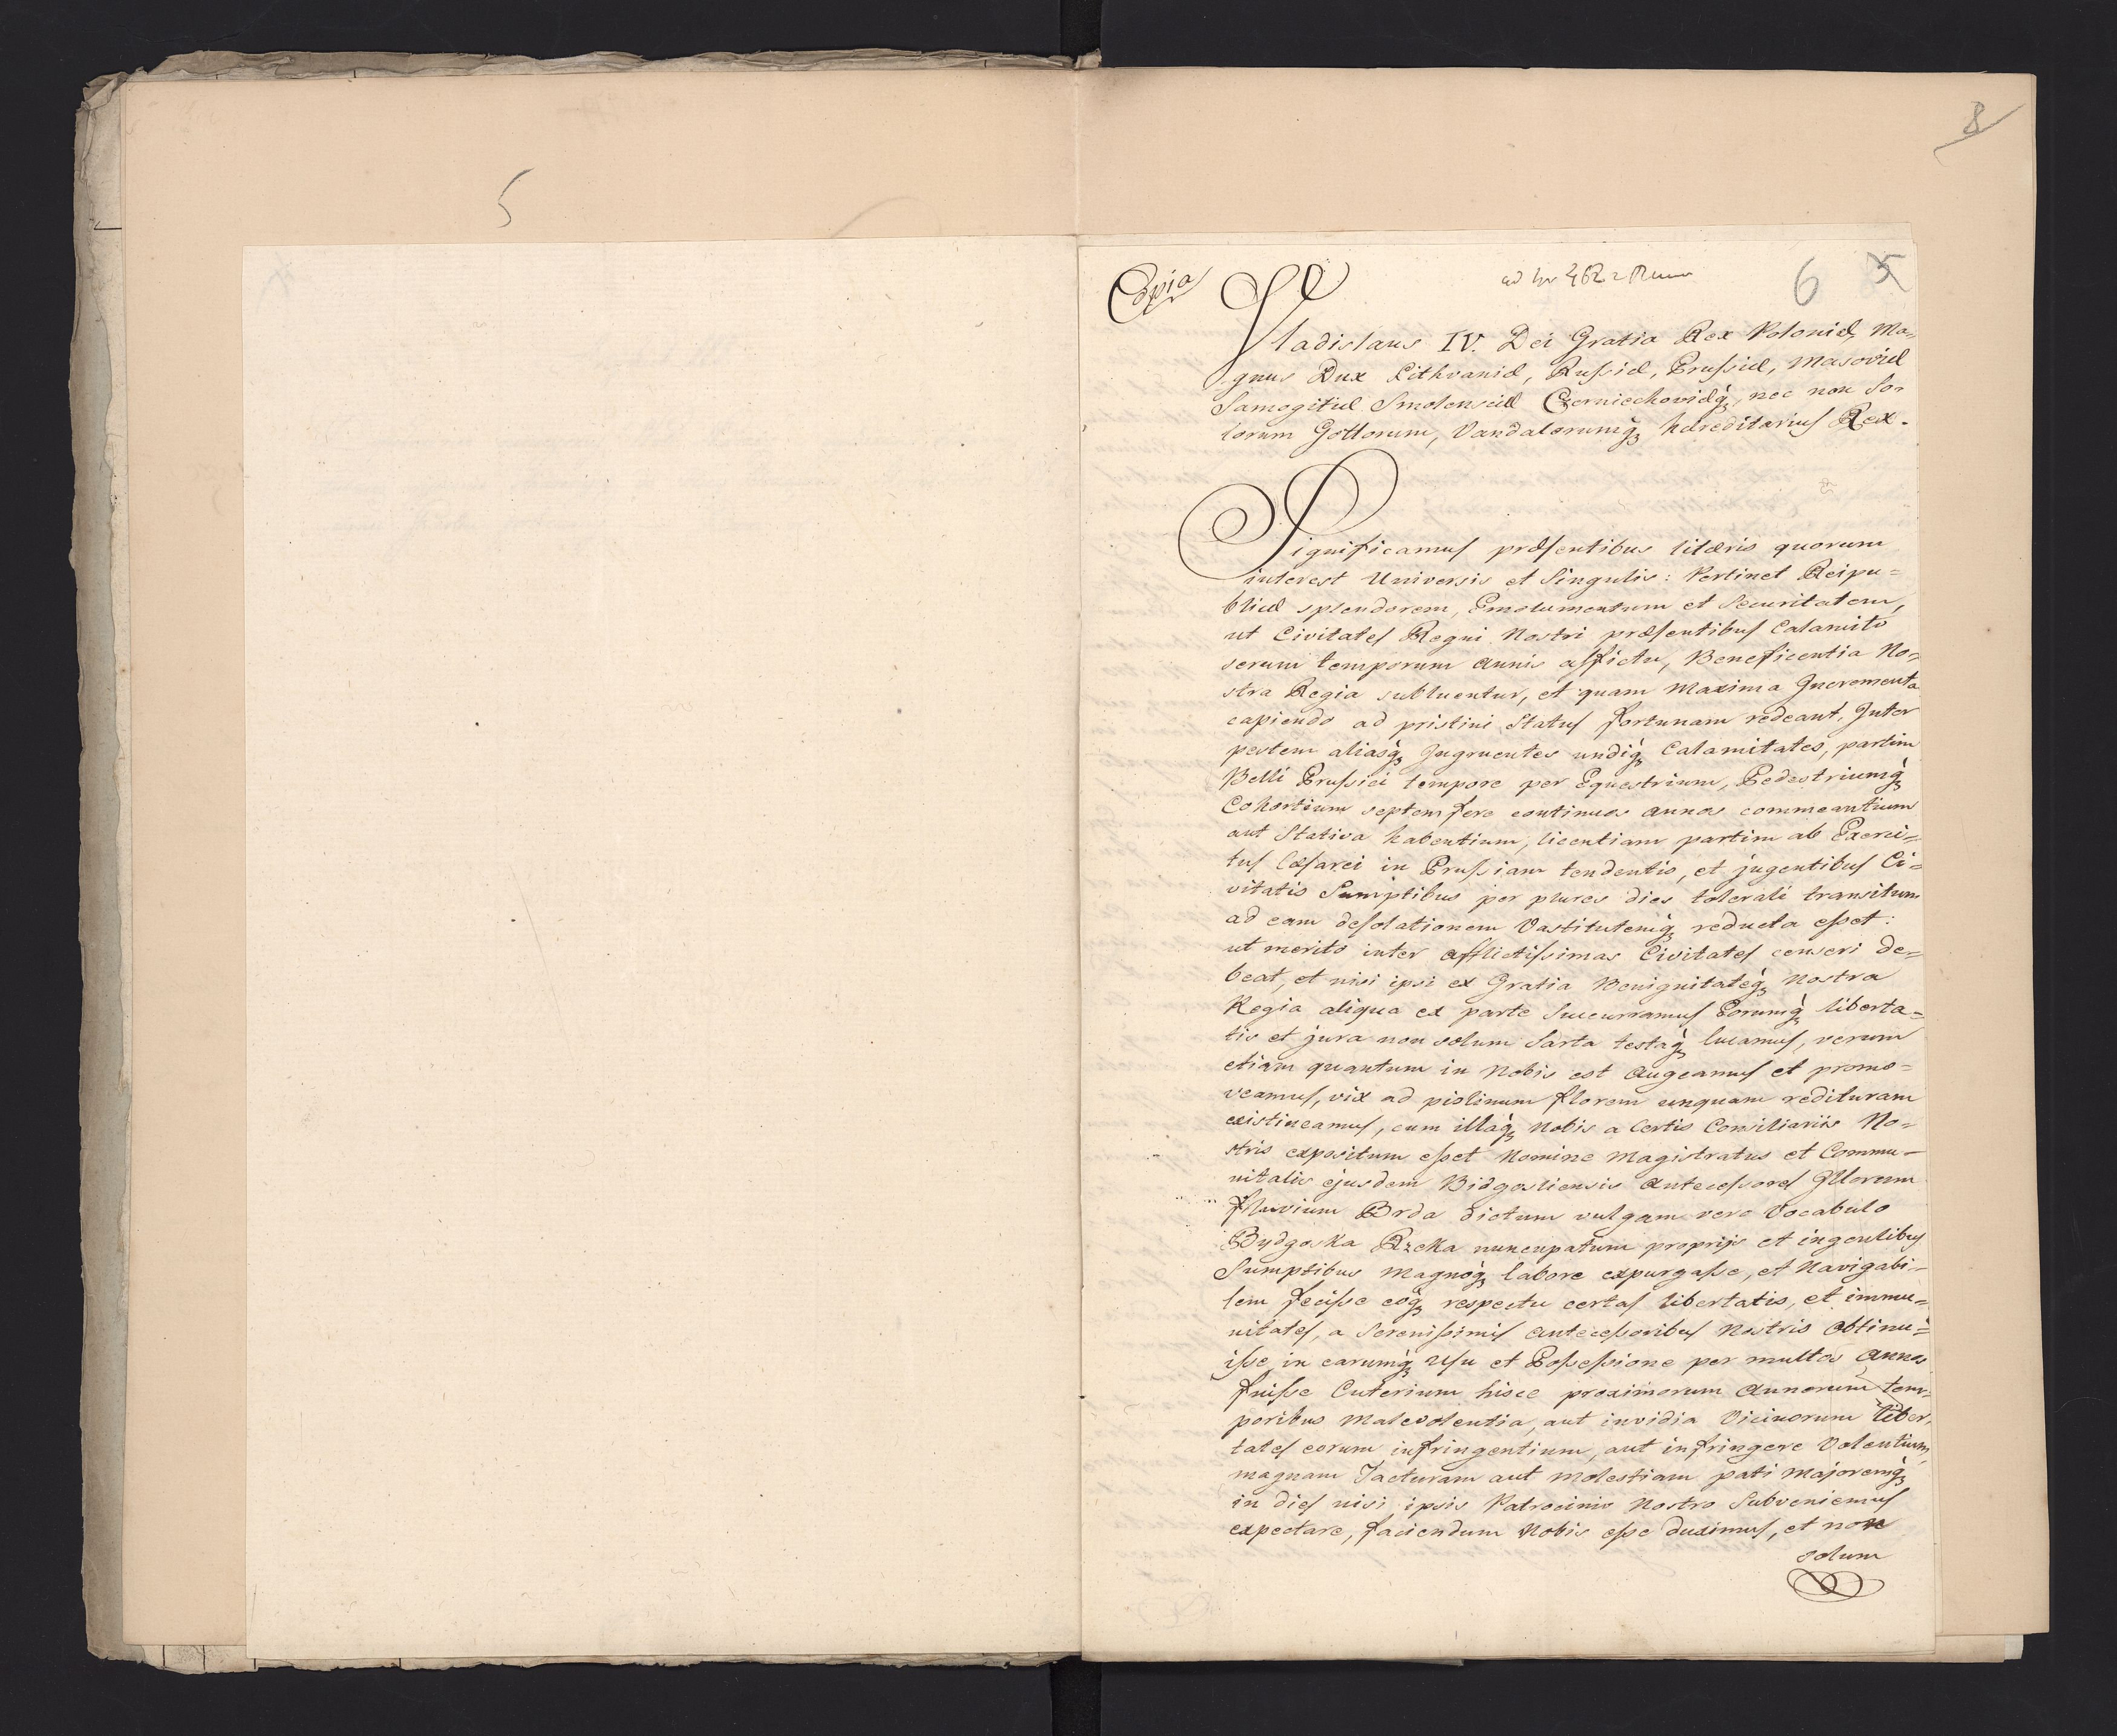 5
8
Copia
6 5
Vladislaus IV. Dei Gratia Rex Poloniæ, Ma-
gnus Dux Lithvaniæ, Russiæ, Prussiæ, Masoviæ
Samogitiæ Smolensciæ Czerniechoviæq́ꝫ, nec non So-
lorum Gottorum, Vandalorumq́ꝫ hæreditarius Rex.
Significamus præsentibus litæris quorum
interest Universis et Singulis: Pertinet Reipu=
blicæ splendorem, Emolumentum et Securitatem,
ut Civitates Regni Nostri præsentibus Calamito
serum temporum annis afflictæ, Beneficentia No=
stra Regia subluentur, et quam Maxima Incrementa
capiendo ad pristini Status fortunam redeant, Inter
pestem aliasq́ꝫ Ingruentes undiq́ꝫ Calamitates, partim
Belli Prussici tempore per Equestrium, Pedestriumq́ꝫ
Cohortium septem fere continuos annos commeantium
aut Stativa habentium, licentiam partim ab Exerci=
tus Cæsarei in Prussiam tendentis, et jugentibus Ci=
vitatis Sumptibus per plures dies tolerati transitum
ad eam desolationem Vastitutemq́ꝫ reducta esset:
ut merito inter afflictissimas Civitates censeri de=
beat, et nisi ipsi ex Gratia Benignitateq́ꝫ Nostra
Regia aliqua ex parte Succurramus Eorumq́ꝫ liberta=
tis et jura non solum Sarta testaq́ꝫ lucamus, verum
etiam quantum in Nobis est Augeamus et promo=
veamus, vix ad pistinum florem unquam redituram
existineamus, cum illaq́ꝫ Nobis a Certis Consiliariis No=
stris expositum esset Nomine Magistratus et Commu-
nitalis ejusdem Bidgostiensis Antecessores Illorum
fluvium Brda dictum vulgam vero Vocabulo
Bydgoska Rzeka nuncupatum proprijs et ingentibus
Sumptibus Magnoq́ꝫ labore expurgasse, et Navigabi-
lem fecisse eoq́ꝫ respectu certas libertatis, et immu=
nitates, a Serenissimis Antecessoribus Nostris Obtinu=
isse in earumq́ꝫ Usu et Possessione per multos Annos
fuisse Cuterium hisce proximorum Annorum tem=
poribus Malevolentia, aut invidia Vicinorum liber,
tates eorum infringentium, aut infringere Volentium,
magnam Jacturam aut Molestiam pati Majoremq́ꝫ
in dies nisi ipsis Patrocinio Nostro Subveniemus
expectare, faciendum Nobis esse duximus, et non
solum